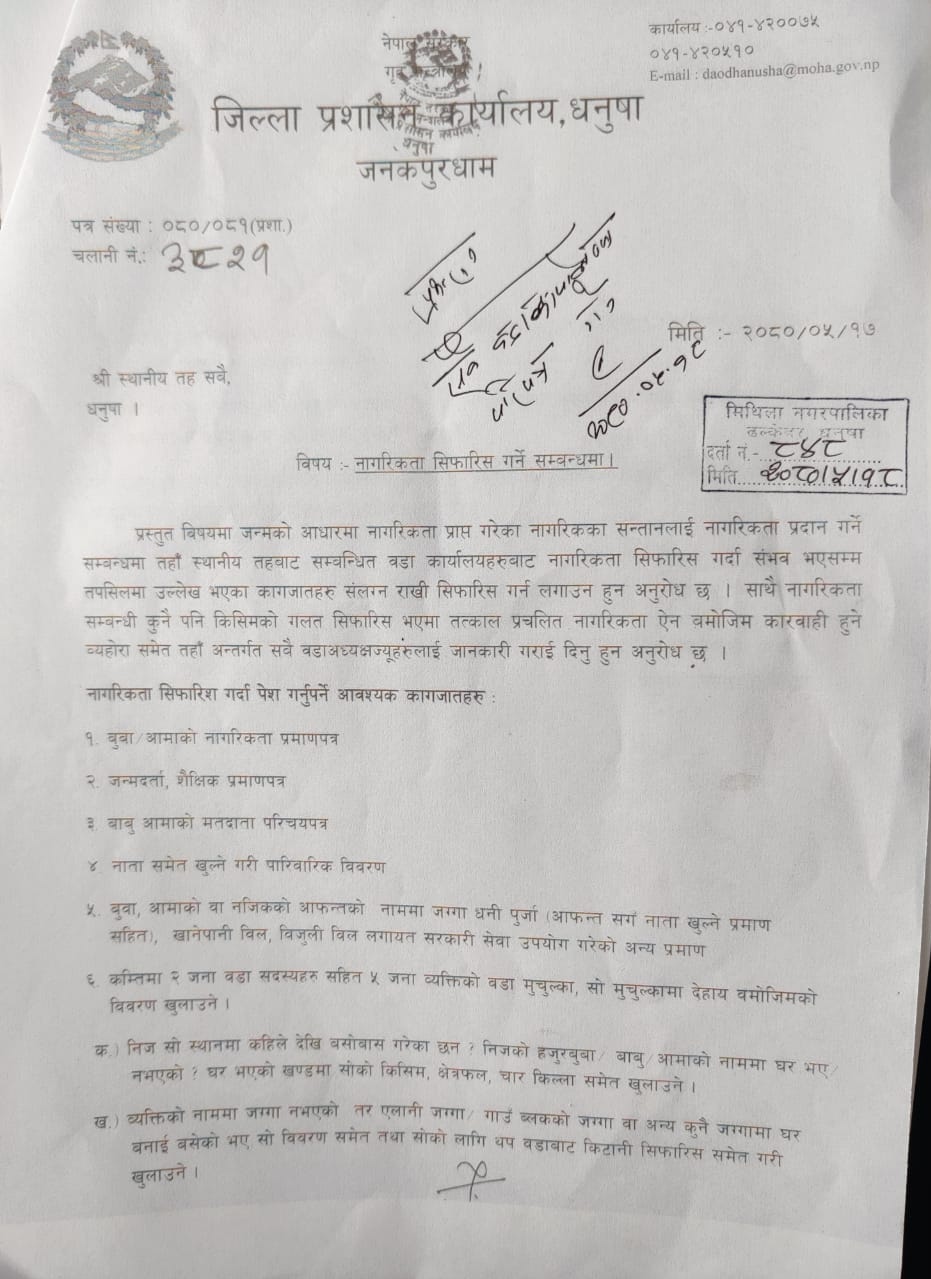 कार्यालय :-०४१-४२००७५
०४१-४२०५१०
E-mail : daodhanusha@moha.gov.np
नेपाल सरकार
गृह मन्त्रालय
जिल्ला प्रशासन कार्यालय,धनुषा
जनकपुरधाम
पत्र संख्या : ०८०/०८१(प्रशा.)
चलानी नं.: ३८२१
मिति :- २०८०/०५/१७
श्री स्थानीय तह सवै,
धनुषा ।
मिथिला नगरपालिका
ढल्केवर, धनुषा
दर्ता नं.- ८४८
मिति २०८०।५।१८
२०८०.०५.१८
विषय :- नागरिकता सिफारिस गर्ने सम्बन्धमा।
प्रस्तुत विषयमा जन्मको आधारमा नागरिकता प्राप्त गरेका नागरिकका सन्तानलाई नागरिकता प्रदान गर्ने
सम्बन्धमा तहाँ स्थानीय तहबाट सम्बन्धित वडा कार्यालयहरुबाट नागरिकता सिफारिस गर्दा संभव भएसम्म
तपसिलमा उल्लेख भएका कागजातहरु संलग्न राखी सिफारिस गर्न लगाउन हुन अनुरोध छ । साथै नागरिकता
सम्बन्धी कुनै पनि किसिमको गलत सिफारिस भएमा तत्काल प्रचलित नागरिकता ऐन बमोजिम कारवाही हुने
व्यहोरा समेत तहाँ अन्तर्गत सवै वडाअध्यक्षज्यूहरुलाई जानकारी गराई दिनु हुन अनुरोध छ ।
नागरिकता सिफारिश गर्दा पेश गर्नुपर्ने आवश्यक कागजातहरु :
१. बुवा/आमाको नागरिकता प्रमाणपत्र
२. जन्मदर्ता, शैक्षिक प्रमाणपत्र
३. बाबु आमाको मतदाता परिचयपत्र
४. नाता समेत खुल्ने गरी पारिवारिक विवरण
५. बुवा, आमाको वा नजिकको आफन्तको नाममा जग्गा धनी पुर्जा (आफन्त सगं नाता खुल्ने प्रमाण
सहित), खानेपानी विल, विजुली विल लगायत सरकारी सेवा उपयोग गरेको अन्य प्रमाण
६. कम्तिमा २ जना वडा सदस्यहरु सहित ५ जना व्यक्तिको वडा मुचुल्का, सो मुचुल्कामा देहाय वमोजिमको
विवरण खुलाउने ।
क.) निज सो स्थानमा कहिले देखि बसोबास गरेका छन ? निजको हजुरबुबा/ बाबु/आमाको नाममा घर भए/
नभएको ? घर भएको खण्डमा सोको किसिम, क्षेत्रफल, चार किल्ला समेत खुलाउने ।
ख.) व्यक्तिको नाममा जग्गा नभएको तर एलानी जग्गा/ गाउँ ब्लकको जग्गा वा अन्य कुनै जग्गामा घर
बनाई बसेको भए सो विवरण समेत तथा सोको लागि थप वडाबाट किटानी सिफारिस समेत गरी
खुलाउने ।